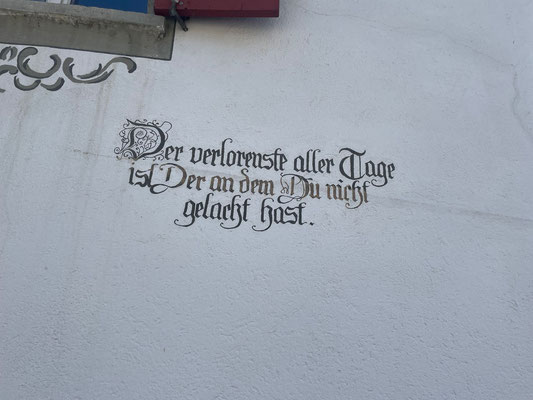 Der verlorenste aller Tage
ist Der an dem Du nicht
gelacht hast.